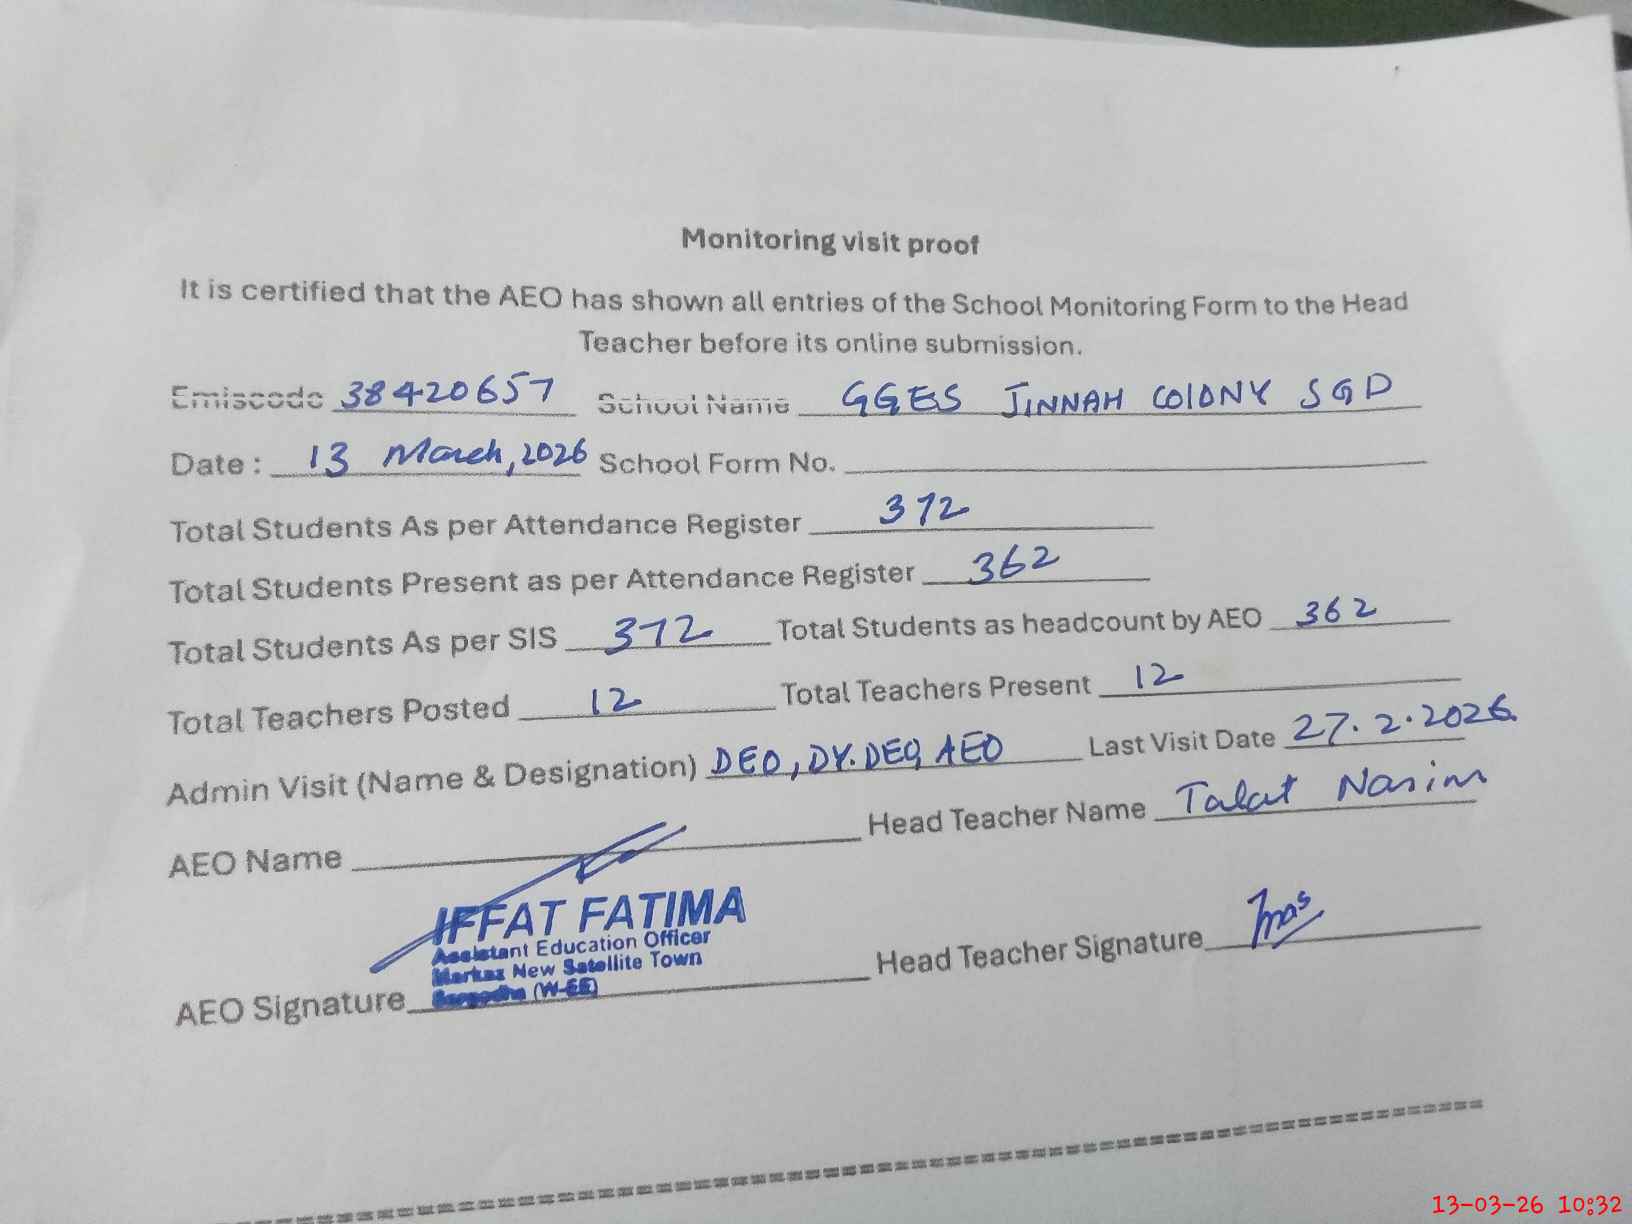 Monitoring visit proof
It is certified that the AEO has shown all entries of the School Monitoring Form to the Head
Teacher before its online submission.
Emiscode 38420657 School Name GGES JINNAH COLONY SGD
Date : 13 March, 2026 School Form No.
Total Students As per Attendance Register 372
Total Students Present as per Attendance Register 362
Total Students As per SIS 372 Total Students as headcount by AEO 362
Total Teachers Posted 12 Total Teachers Present 12
Admin Visit (Name & Designation) DEO, DY.DEO, AEO Last Visit Date 27.2.2026.
AEO Name Head Teacher Name Talat Nasim
IFFAT FATIMA
Assistant Education Officer
Markaz New Satellite Town
Sargodha (W-EE)
AEO Signature Head Teacher Signature
13-03-26 10:32